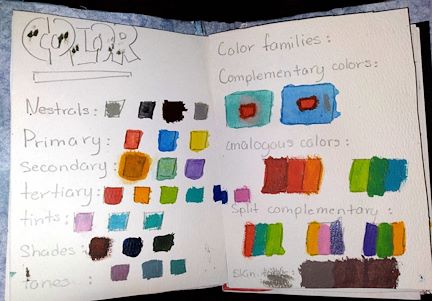 COLOR
Neutrals:
Primary:
Secondary:
tertiary:
tints:
Shades:
tones:
Color families:
Complementary colors:
analogous colors:
Split complementary:
Skin tones: